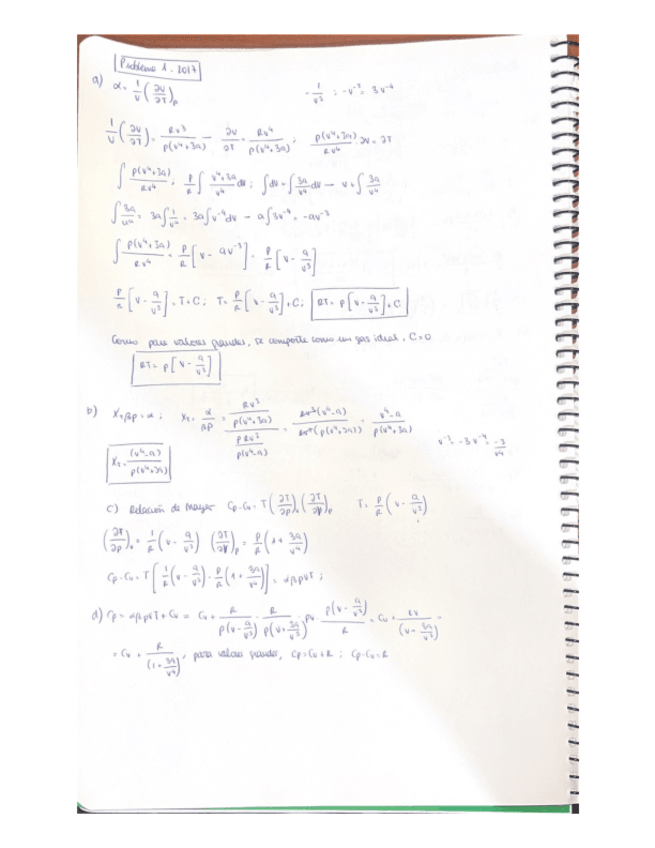 Problema 1. 2017
a) α = 1/v (∂v/∂T)_p
-1/v³ ; -v⁻³ = 3v⁻⁴
1/v (∂v/∂T) = Rv³/p(v⁴+3a) → ∂v/∂T = Rv⁴/p(v⁴+3a) ; p(v⁴+3a)/Rv⁴ ∂v = ∂T
∫ p(v⁴+3a)/Rv⁴ = p/R ∫ v⁴+3a/v⁴ dv ; ∫dv + ∫ 3a/v⁴ dv → v + ∫ 3a/v⁴
∫ 3a/v⁴ = 3a∫ 1/v⁴ = 3a∫v⁻⁴dv → a∫3v⁻⁴ = -av⁻³
∫ p(v⁴+3a)/Rv⁴ = p/R [v - av⁻³] = p/R [v - a/v³]
p/R [v - a/v³] = T+C ; T = p/R [v - a/v³] + C ; RT = p[v - a/v³] + C
Como para valores grandes, se comporta como un gas ideal, C=0
RT = p[v - a/v³]
b) X_Tβp = α ; X_T = α/βp = Rv³/p(v⁴+3a) / pRv³/p(v⁴-a) = Rv³(v⁴-a)/Rv³(p(v⁴+3a)) = v⁴-a/p(v⁴+3a)
v⁻³ = -3v⁻⁴ = -3/v⁴
X_T = (v⁴-a)/p(v⁴+3a)
c) Relación de Mayer Cp-Cv = T (∂T/∂p)_v (∂T/∂v)_p T = p/R (v - a/v³)
(∂T/∂p)_v = 1/R (v - a/v³) (∂T/∂v)_p = p/R (1 + 3a/v⁴)
Cp-Cv = T [1/R (v - a/v³) · p/R (1 + 3a/v⁴)] = αβpvT ;
d) Cp = αβpvT + Cv = Cv + R/p(v - a/v³) · R/p(v + 3a/v³) · pv · p(v - a/v³)/R = Cv + Rv/(v + 3a/v³) =
= Cv + R/(1 + 3a/v⁴) , para valores grandes, Cp = Cv + R ; Cp-Cv = R